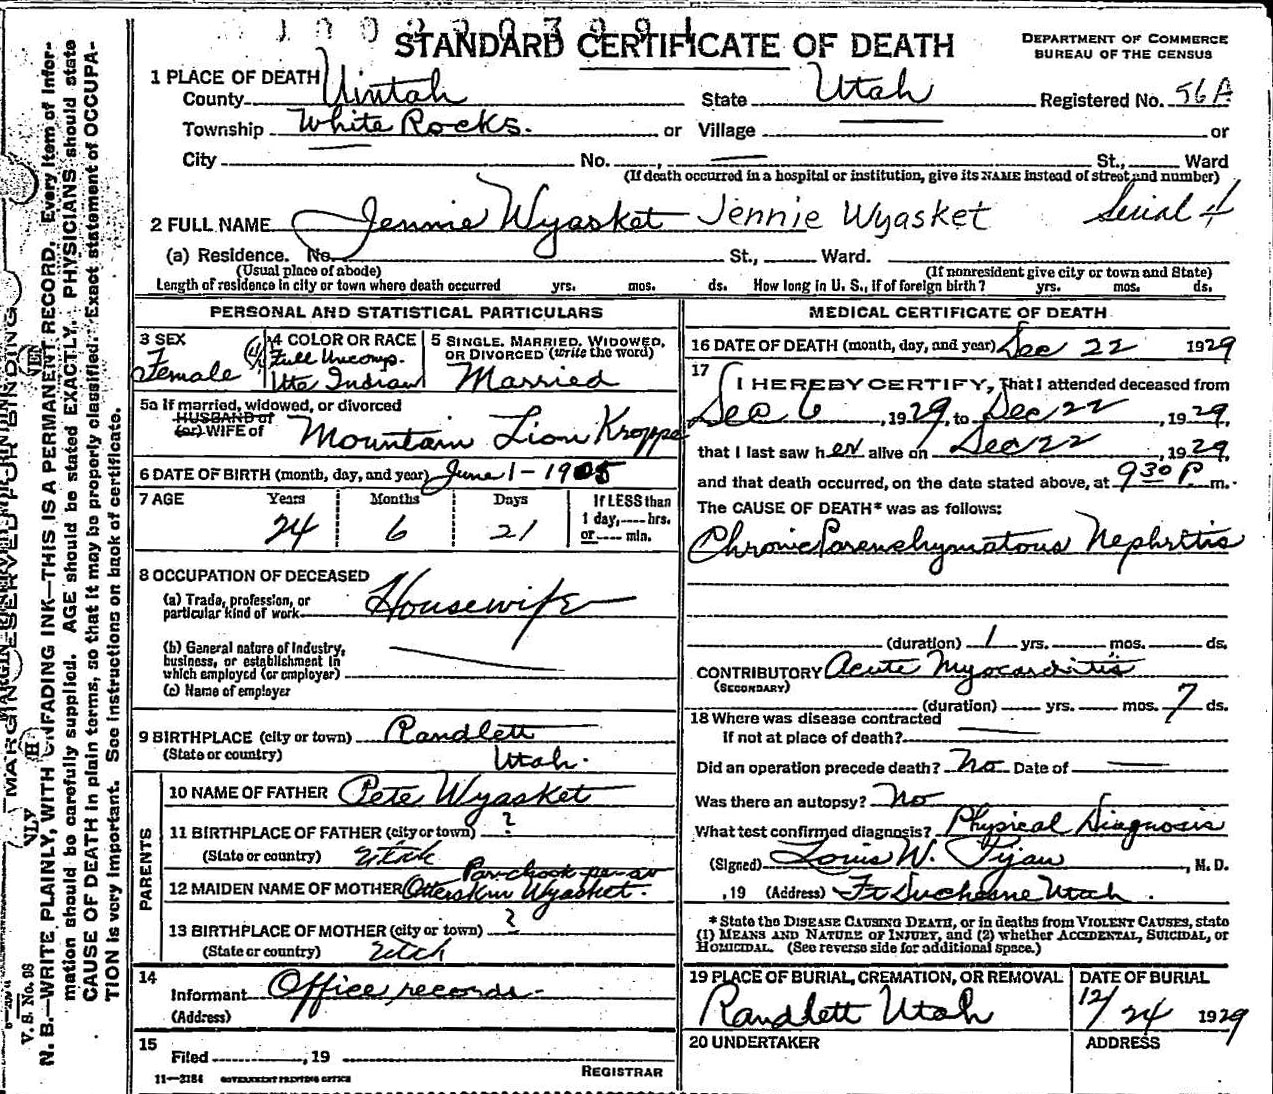 STANDARD CERTIFICATE OF DEATH
DEPARTMENT OF COMMERCE
BUREAU OF THE CENSUS
1 PLACE OF DEATH
County Uintah State Utah Registered No. 56A
Township White Rocks. or Village or
City No. , St., Ward
(If death occurred in a hospital or institution, give its NAME instead of street and number)
2 FULL NAME Jennie Wyasket Jennie Wyasket Serial 4
(a) Residence. No. St., Ward.
(Usual place of abode) (If nonresident give city or town and State)
Length of residence in city or town where death occurred yrs. mos. ds. How long in U. S., if of foreign birth? yrs. mos. ds.
PERSONAL AND STATISTICAL PARTICULARS
3 SEX
Female
4 COLOR OR RACE
Full Uncomp.
Ute Indian
5 SINGLE, MARRIED, WIDOWED, OR DIVORCED (write the word)
Married
5a If married, widowed, or divorced
HUSBAND of
(or) WIFE of Mountain Lion Kroppe
6 DATE OF BIRTH (month, day, and year) June 1 - 1905
7 AGE Years Months Days If LESS than
24 6 21 1 day, ---- hrs.
or ---- min.
8 OCCUPATION OF DECEASED
(a) Trade, profession, or
particular kind of work Housewife
(b) General nature of industry,
business, or establishment in
which employed (or employer)
(c) Name of employer
9 BIRTHPLACE (city or town) Randlett
(State or country) Utah.
PARENTS
10 NAME OF FATHER Pete Wyasket
11 BIRTHPLACE OF FATHER (city or town) ?
(State or country) Utah
12 MAIDEN NAME OF MOTHER Otterskin Wyasket.
13 BIRTHPLACE OF MOTHER (city or town) ?
(State or country) Utah
14
Informant Office records.
(Address)
15
Filed , 19
REGISTRAR
11—3184 GOVERNMENT PRINTING OFFICE
MEDICAL CERTIFICATE OF DEATH
16 DATE OF DEATH (month, day, and year) Dec 22 1929
17
I HEREBY CERTIFY, That I attended deceased from
Dec 6, 1929, to Dec 22, 1929,
that I last saw her alive on Dec 22, 1929,
and that death occurred, on the date stated above, at 9 30 P. m.
The CAUSE OF DEATH* was as follows:
Chronic Parenchymatous Nephritis
(duration) 1 yrs. mos. ds.
CONTRIBUTORY Acute Myocarditis
(SECONDARY)
(duration) yrs. mos. 7 ds.
18 Where was disease contracted
if not at place of death?
Did an operation precede death? No Date of
Was there an autopsy? No
What test confirmed diagnosis? Physical Diagnosis
(Signed) Louis W. , M. D.
, 19 (Address) Ft Duchesne Utah.
* State the DISEASE CAUSING DEATH, or in deaths from VIOLENT CAUSES, state
(1) MEANS AND NATURE OF INJURY, and (2) whether ACCIDENTAL, SUICIDAL, or
HOMICIDAL. (See reverse side for additional space.)
19 PLACE OF BURIAL, CREMATION, OR REMOVAL
Randlett Utah
DATE OF BURIAL
12/24 1929
20 UNDERTAKER
ADDRESS
MARGIN RESERVED FOR BINDING
V. S. No. 98
N. B.—WRITE PLAINLY, WITH UNFADING INK—THIS IS A PERMANENT RECORD. Every item of infor-
mation should be carefully supplied. AGE should be stated EXACTLY. PHYSICIANS should state
CAUSE OF DEATH in plain terms, so that it may be properly classified. Exact statement of OCCUPA-
TION is very important. See instructions on back of certificate.